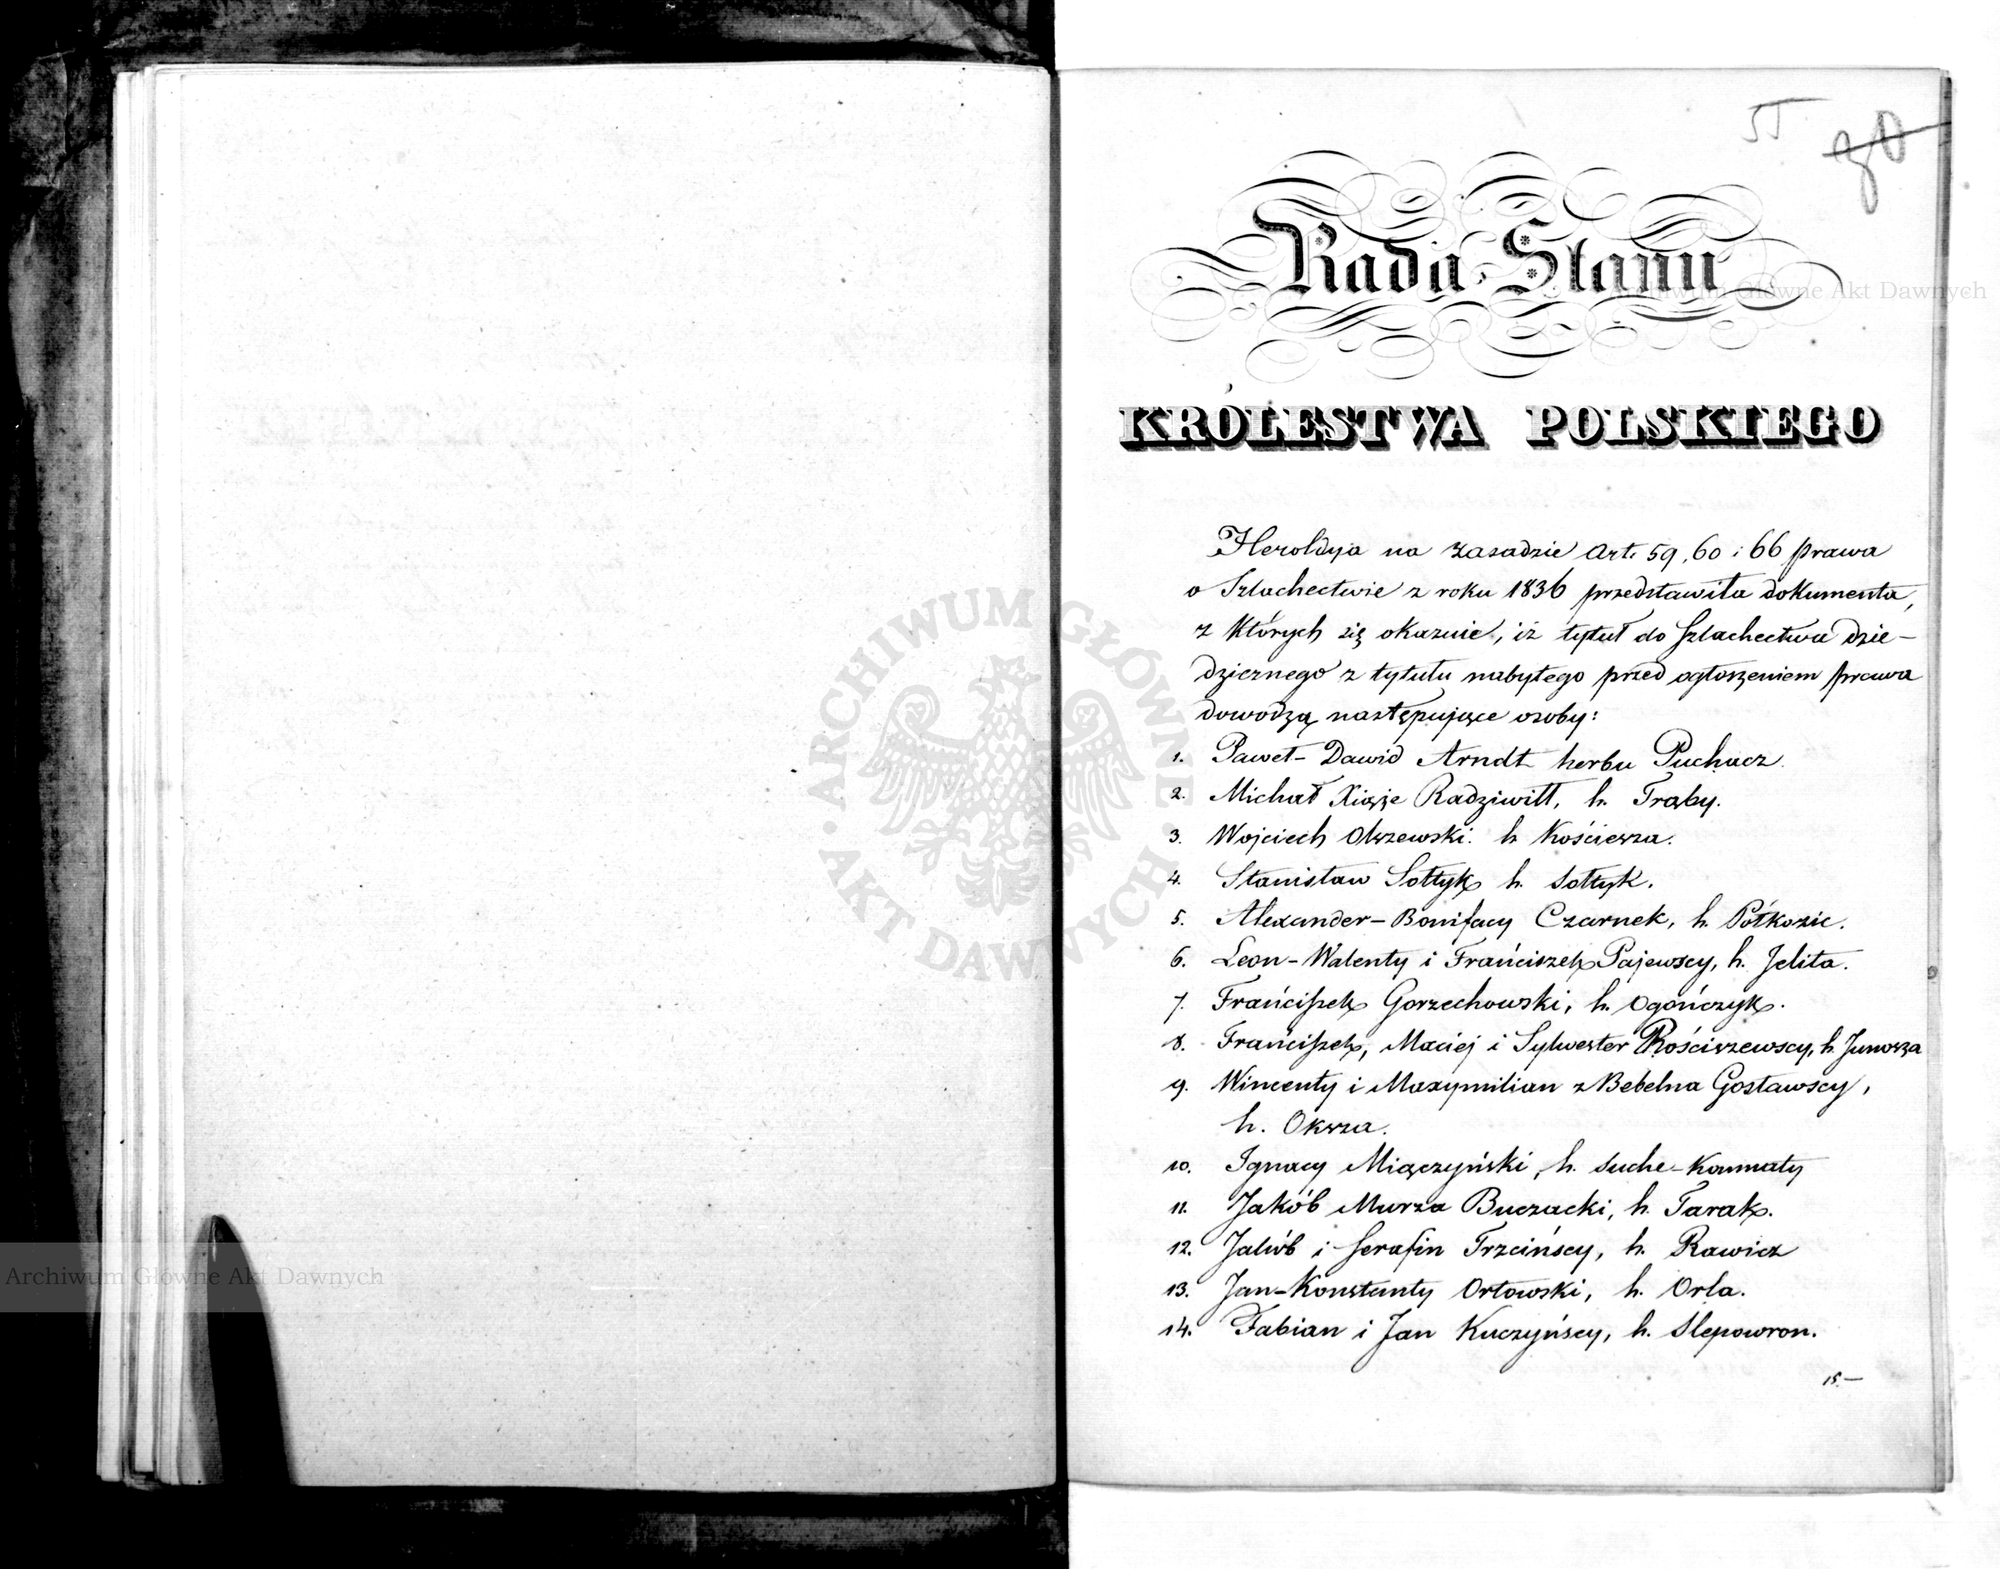 55
90
Rada Stanu
KRÓLESTWA POLSKIEGO
Heroldya na zasadzie Art. 59, 60 i 66 prawa
o Szlachectwie z roku 1836 przedstawiła dokumenta,
z których się okazuie, iż tytuł do Szlachectwa dzie-
dzicznego z tytułu nabytego przed ogłoszeniem prawa
dowodzą następujące osoby:
1. Paweł-Dawid Arndt herbu Puchacz.
2. Michał Xiąże Radziwiłł, h. Trąby.
3. Wojciech Olszewski. h Kościesza.
4. Stanisław Sołtyk h. Sołtyk.
5. Alexander-Bonifacy Czarnek, h. Półkozic.
6. Leon-Walenty i Frańciszek Pajewscy, h. Jelita.
7. Frańciszek Gorzechowski, h. Ogończyk.
8. Frańciszek, Maciej i Sylwester Rościszewscy, h. Junosza
9. Wincenty i Maxymilian z Bebelna Gosławscy,
h. Oksza.
10. Ignacy Miączyński, h. Suche-Komnaty
11. Jakób Murza Buczacki, h. Tarak.
12. Jakób i Serafin Trzcińscy, h. Rawicz
13. Jan-Konstanty Orłowski, h. Orla.
14. Fabian i Jan Kuczyńscy, h. Slepowron.
15.—
ARCHIWUM GŁÓWNE AKT DAWNYCH
Archiwum Główne Akt Dawnych
Archiwum Główne Akt Dawnych